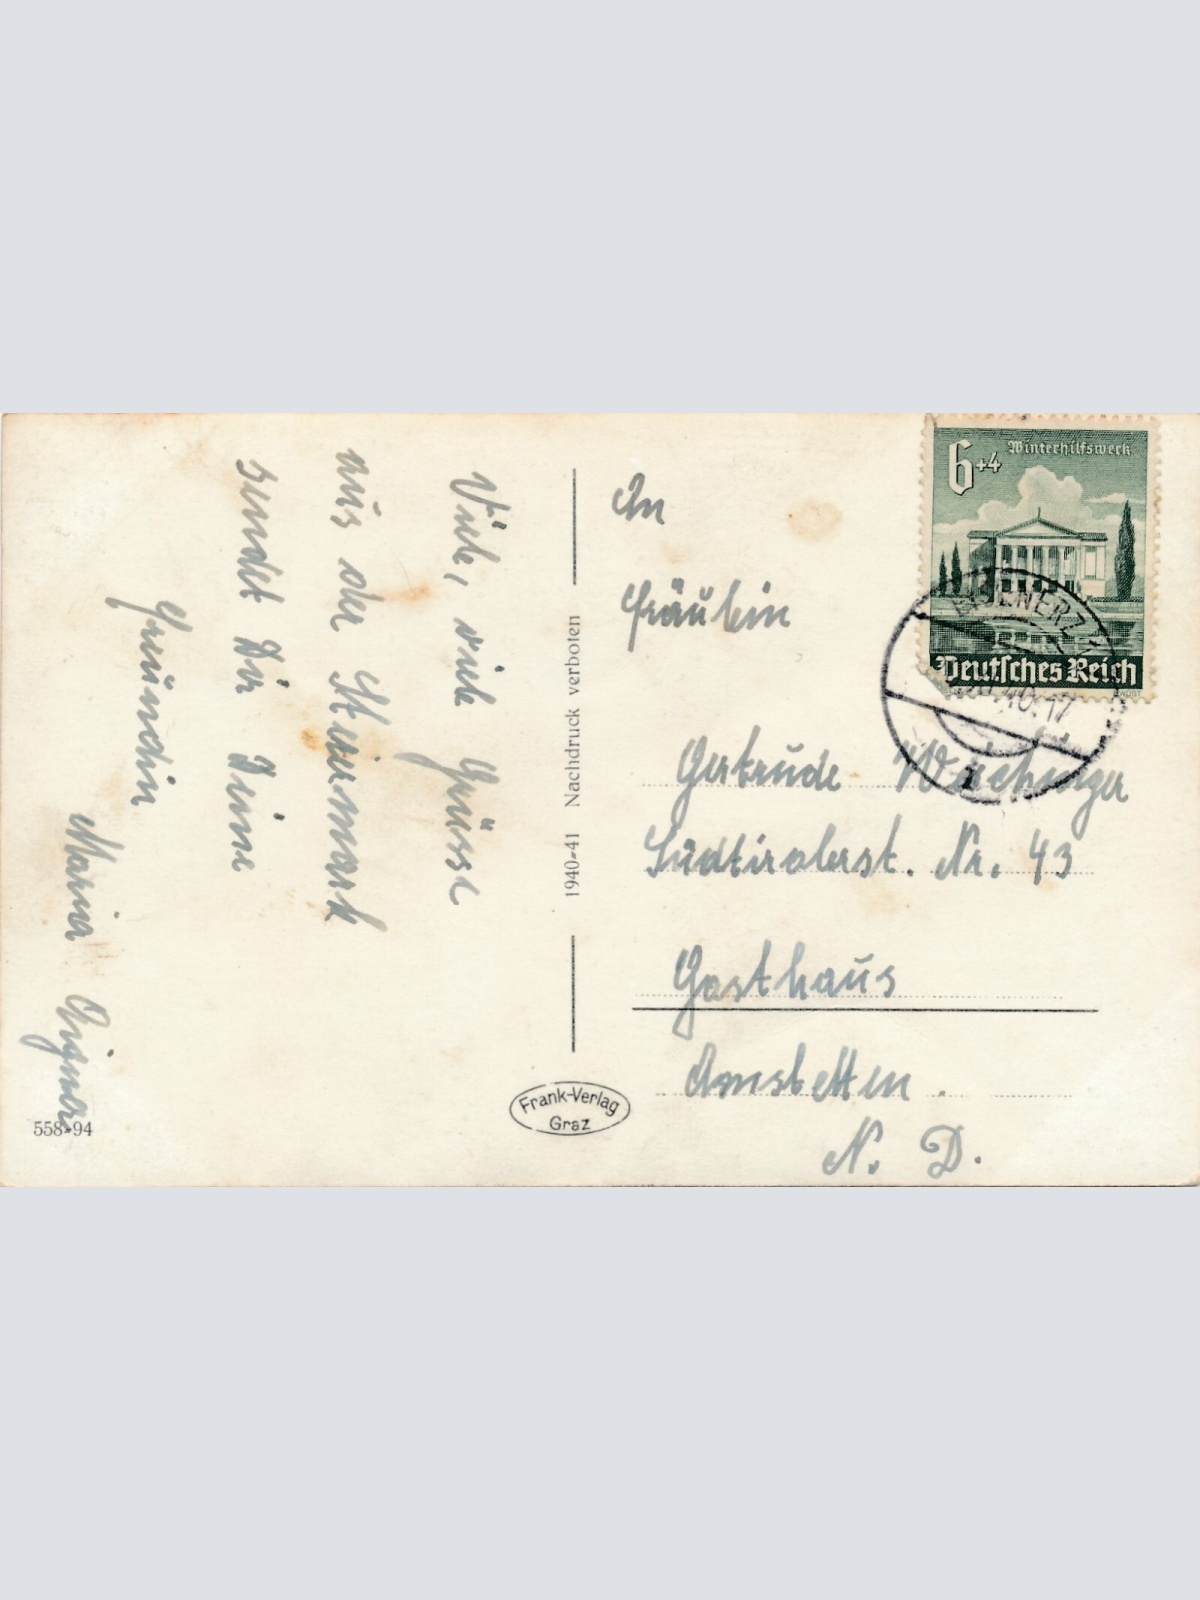 Viele, viele Grüsse
aus der Steiermark
sendet Dir Deine
Freundin
Maria Aigner
558-94
1940-41 Nachdruck verboten
Frank-Verlag
Graz
6+4 Winterhilfswerk
Deutsches Reich
EISENERZ 1
40.17
An
Fräulein
Gertrude Wachinger
Südtirolerst. Nr. 43
Gasthaus
Amstetten.
N. D.